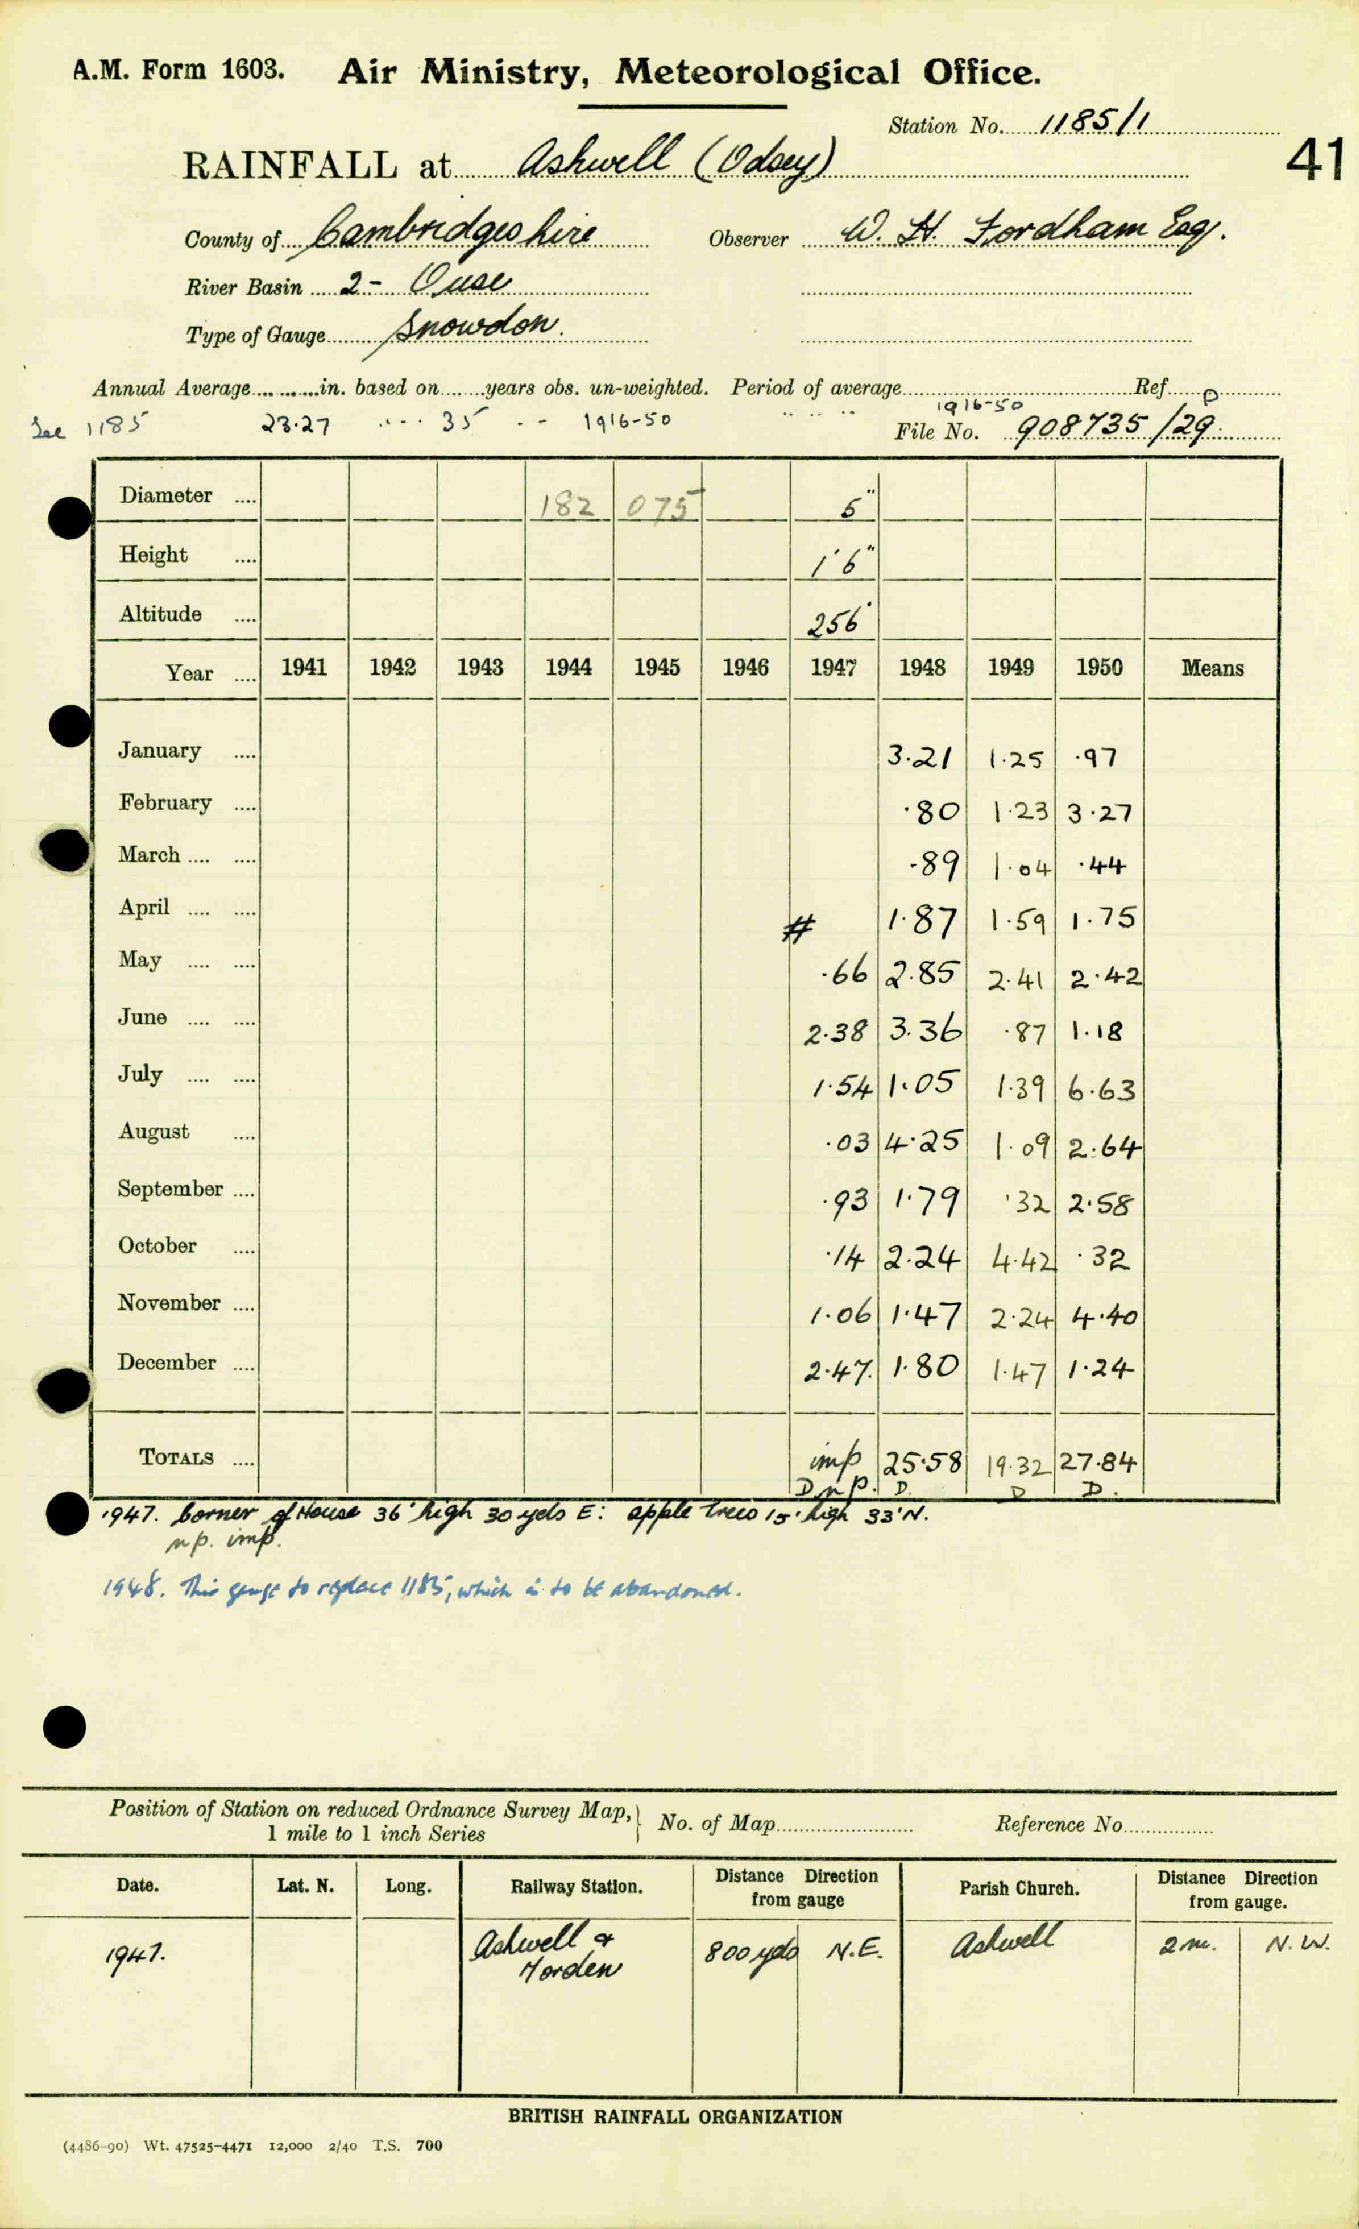 A.M. Form 1603. Air Ministry, Meteorological Office.
Station No. 1185/1
41
RAINFALL at Ashwell (Odsey)
County of Cambridgeshire Observer W. H. Fordham Esq.
River Basin 2- Ouse
Type of Gauge Snowdon.
Annual Average in. based on years obs. un-weighted. Period of average Ref. P
See 1185 23.27 .... 35 - - 1916-50 " .. .. " 1916-50
File No. 908735/29
Diameter .... 182 075 5"
Height .... 1'6"
Altitude .... 256'
Year .... 1941 1942 1943 1944 1945 1946 1947 1948 1949 1950 Means
January .... 3.21 1.25 .97
February .... .80 1.23 3.27
March .... .... .89 1.04 .44
April .... .... # 1.87 1.59 1.75
May .... .... .66 2.85 2.41 2.42
June .... .... 2.38 3.36 .87 1.18
July .... .... 1.54 1.05 1.39 6.63
August .... .03 4.25 1.09 2.64
September .... .93 1.79 .32 2.58
October .... .14 2.24 4.42 .32
November .... 1.06 1.47 2.24 4.40
December .... 2.47. 1.80 1.47 1.24
TOTALS .... imp 25.58 19.32 27.84
D n.p. D. D D.
1947. Corner of House 36' high 30 yds E: apple trees 15' high 33' N.
n.p. imp.
1948. This gauge to replace 1185, which is to be abandoned.
Position of Station on reduced Ordnance Survey Map, No. of Map Reference No.
1 mile to 1 inch Series
Date. Lat. N. Long. Railway Station. Distance Direction from gauge Parish Church. Distance Direction from gauge.
1947. Ashwell & Morden 800 yds N.E. Ashwell 2 m. N.W.
BRITISH RAINFALL ORGANIZATION
(4486-90) Wt. 47525-4471 12,000 2/40 T.S. 700